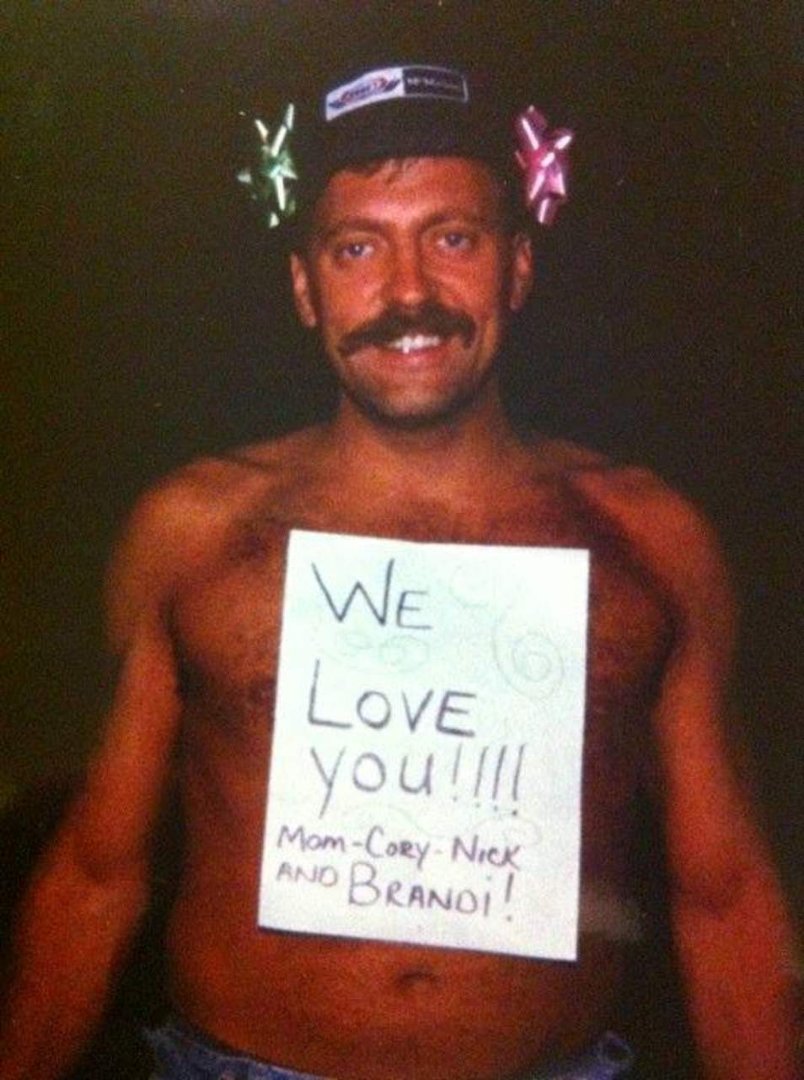 WE
LOVE
YOU!!!!
MOM-CORY-NICK
AND BRANDI!